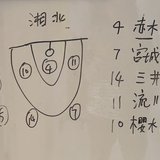 湘北
4 赤木
7 宮城
14 三井
11 流川
10 櫻木
④
⑪
⑭
⑦